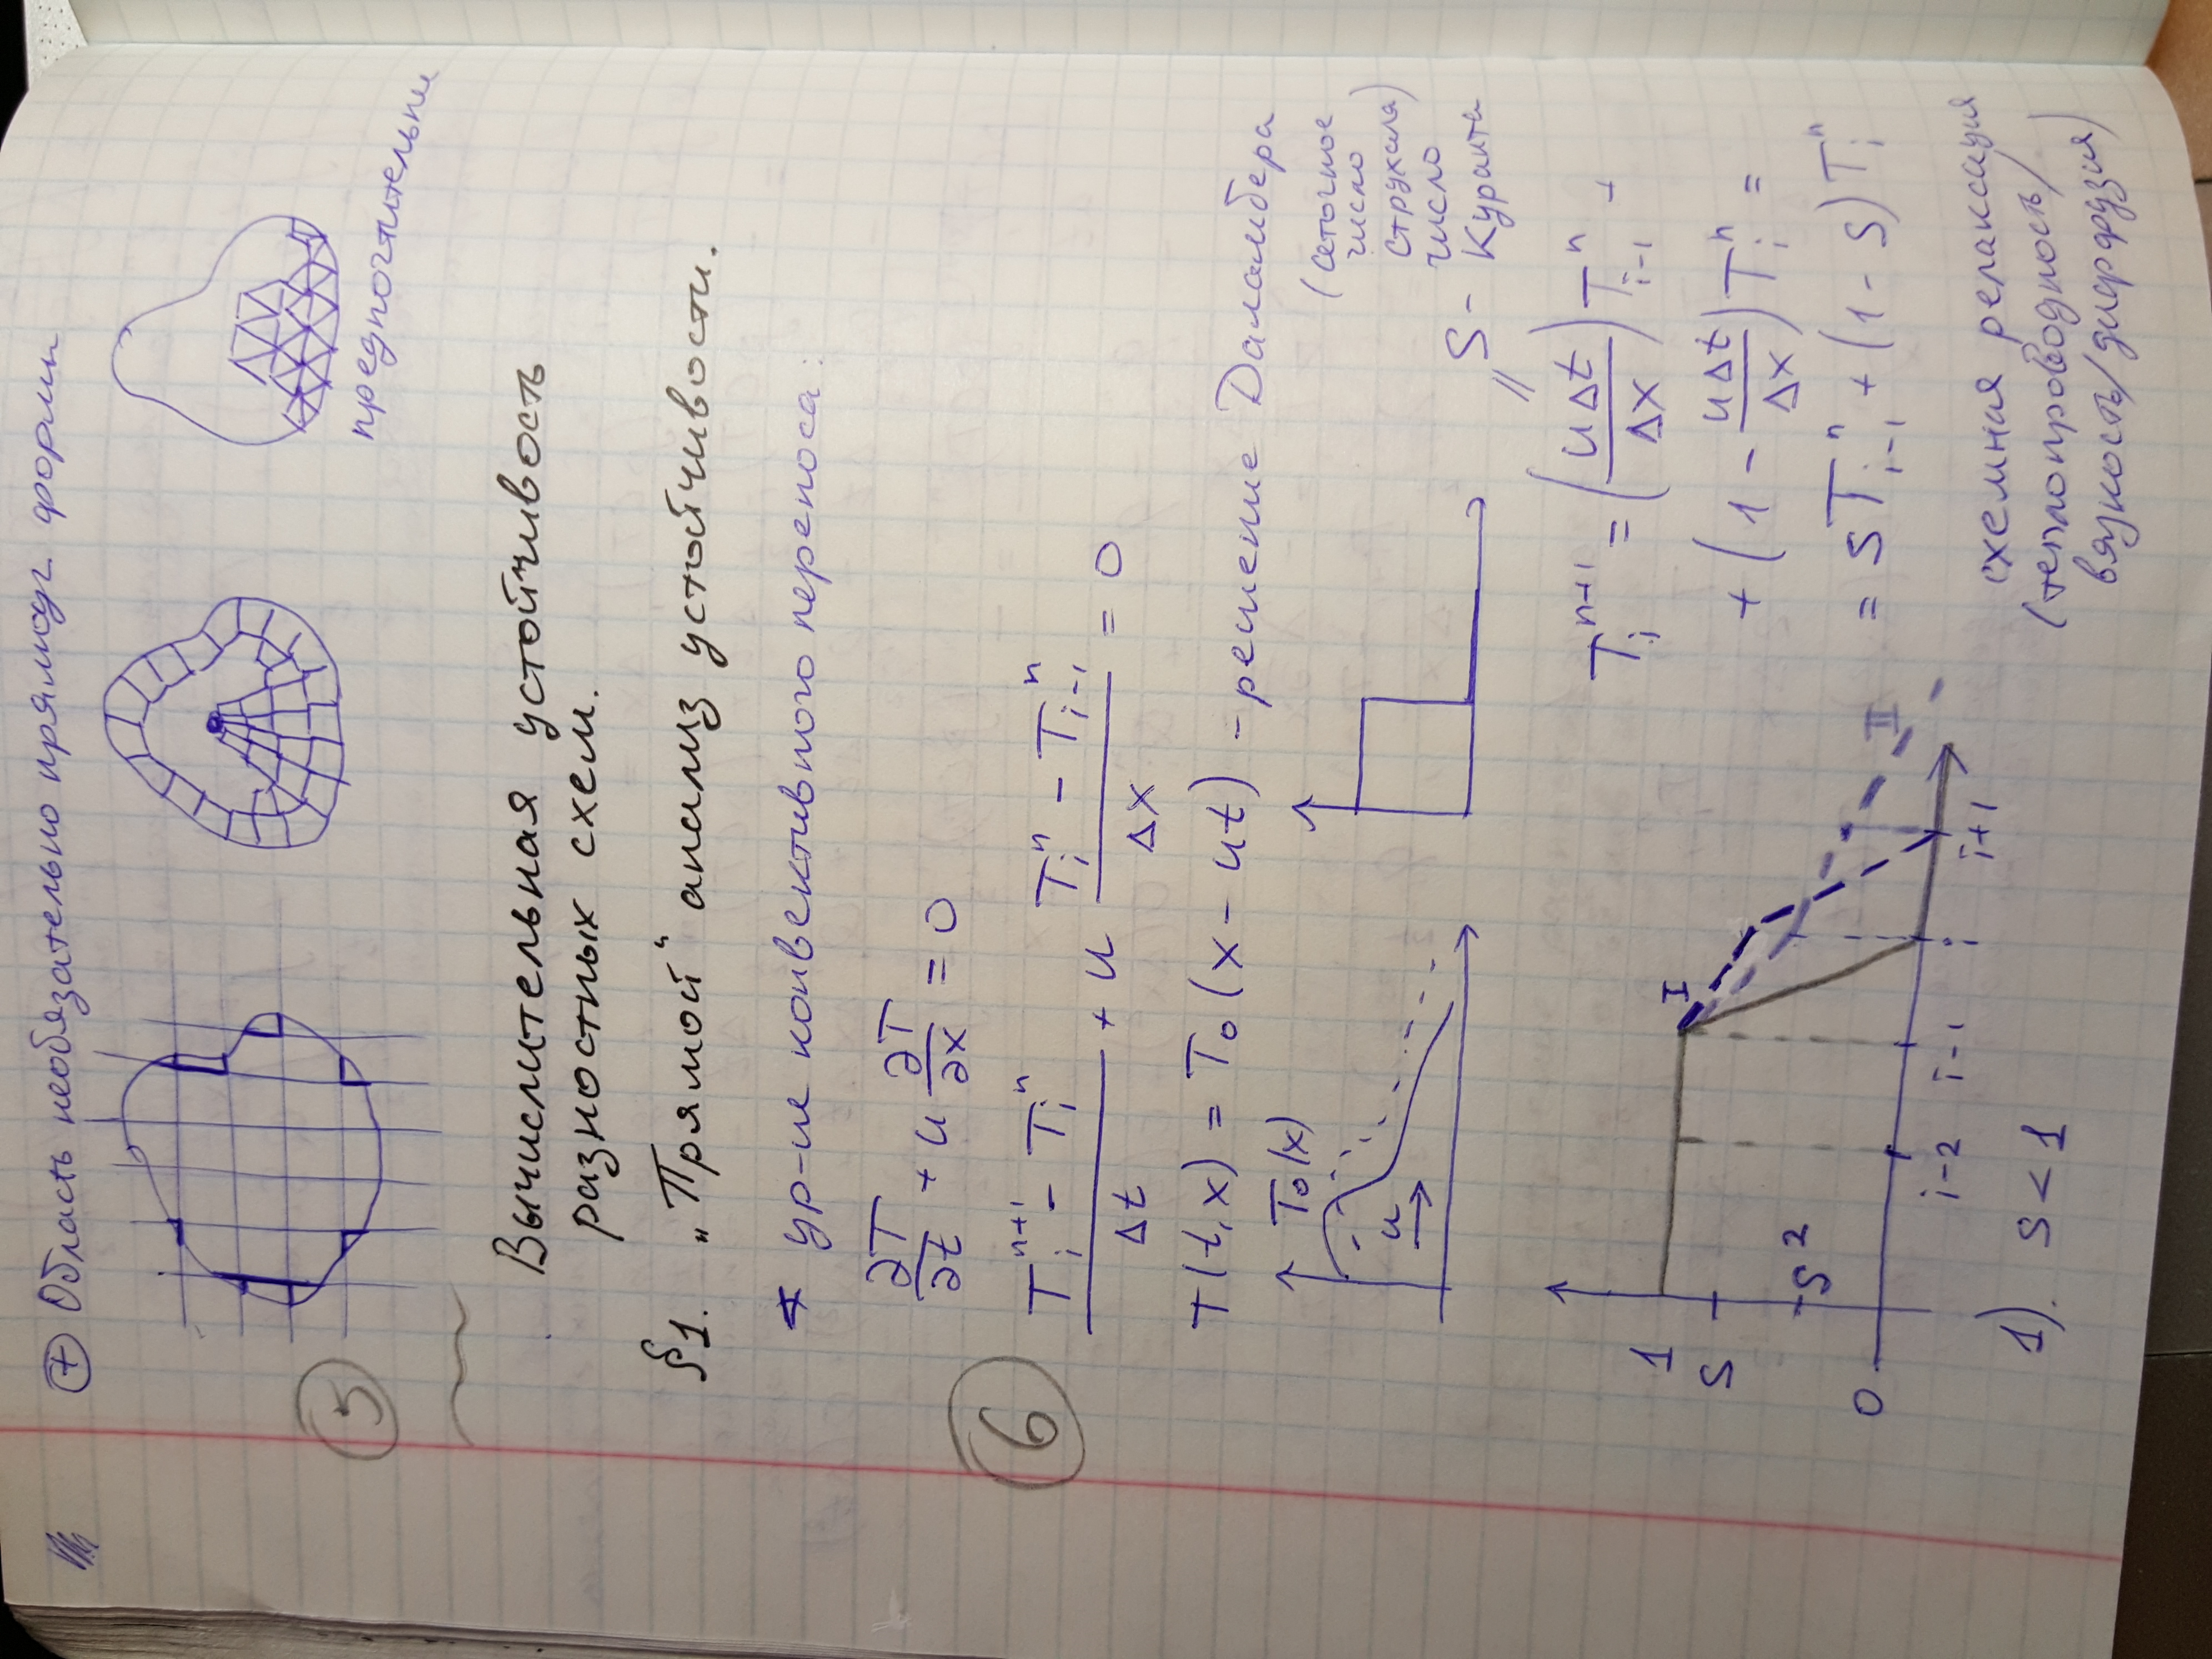 ⊕ Область необязательно прямоуг. формы
5
предпочтительны
Вычислительная устойчивость
разностных схем.
§1. „Прямой“ анализ устойчивости.
* ур-ие конвективного переноса:
∂T/∂t + u ∂T/∂x = 0
6
(T_i^{n+1} - T_i^n)/Δt + u (T_i^n - T_{i-1}^n)/Δx = 0
T(t,x) = T₀(x - ut) - решение Даламбера
T₀(x)
u
(сеточное
число
Струхаля)
число
S - Куранта
//
T_i^{n+1} = (uΔt/Δx) T_{i-1}^n +
+ (1 - uΔt/Δx) T_i^n =
= S T_{i-1}^n + (1 - S) T_i^n
1
I
S
S²
0
II
i-2 i-1 i i+1
1). S < 1
схемная релаксация
(теплопроводность/
вязкость/диффузия)